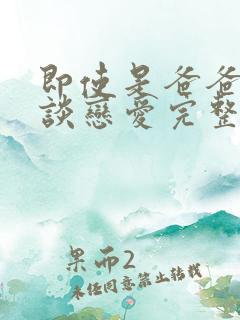 即使是爸爸
談戀愛完整
果而2
未经同意禁止转载